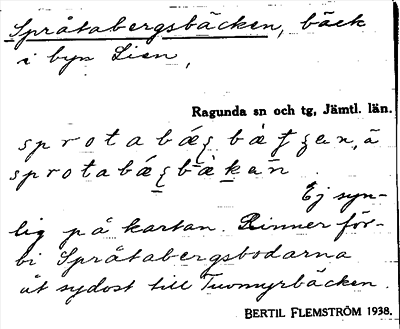 Språtabergsbäcken, bäck
i byn Lien,
Ragunda sn och tg, Jämtl. län.
Ej syn-
lig på kartan. Rinner för-
bi Språtabergsbodarna
åt sydost till Tuvmyrbäcken.
BERTIL FLEMSTRÖM 1938.